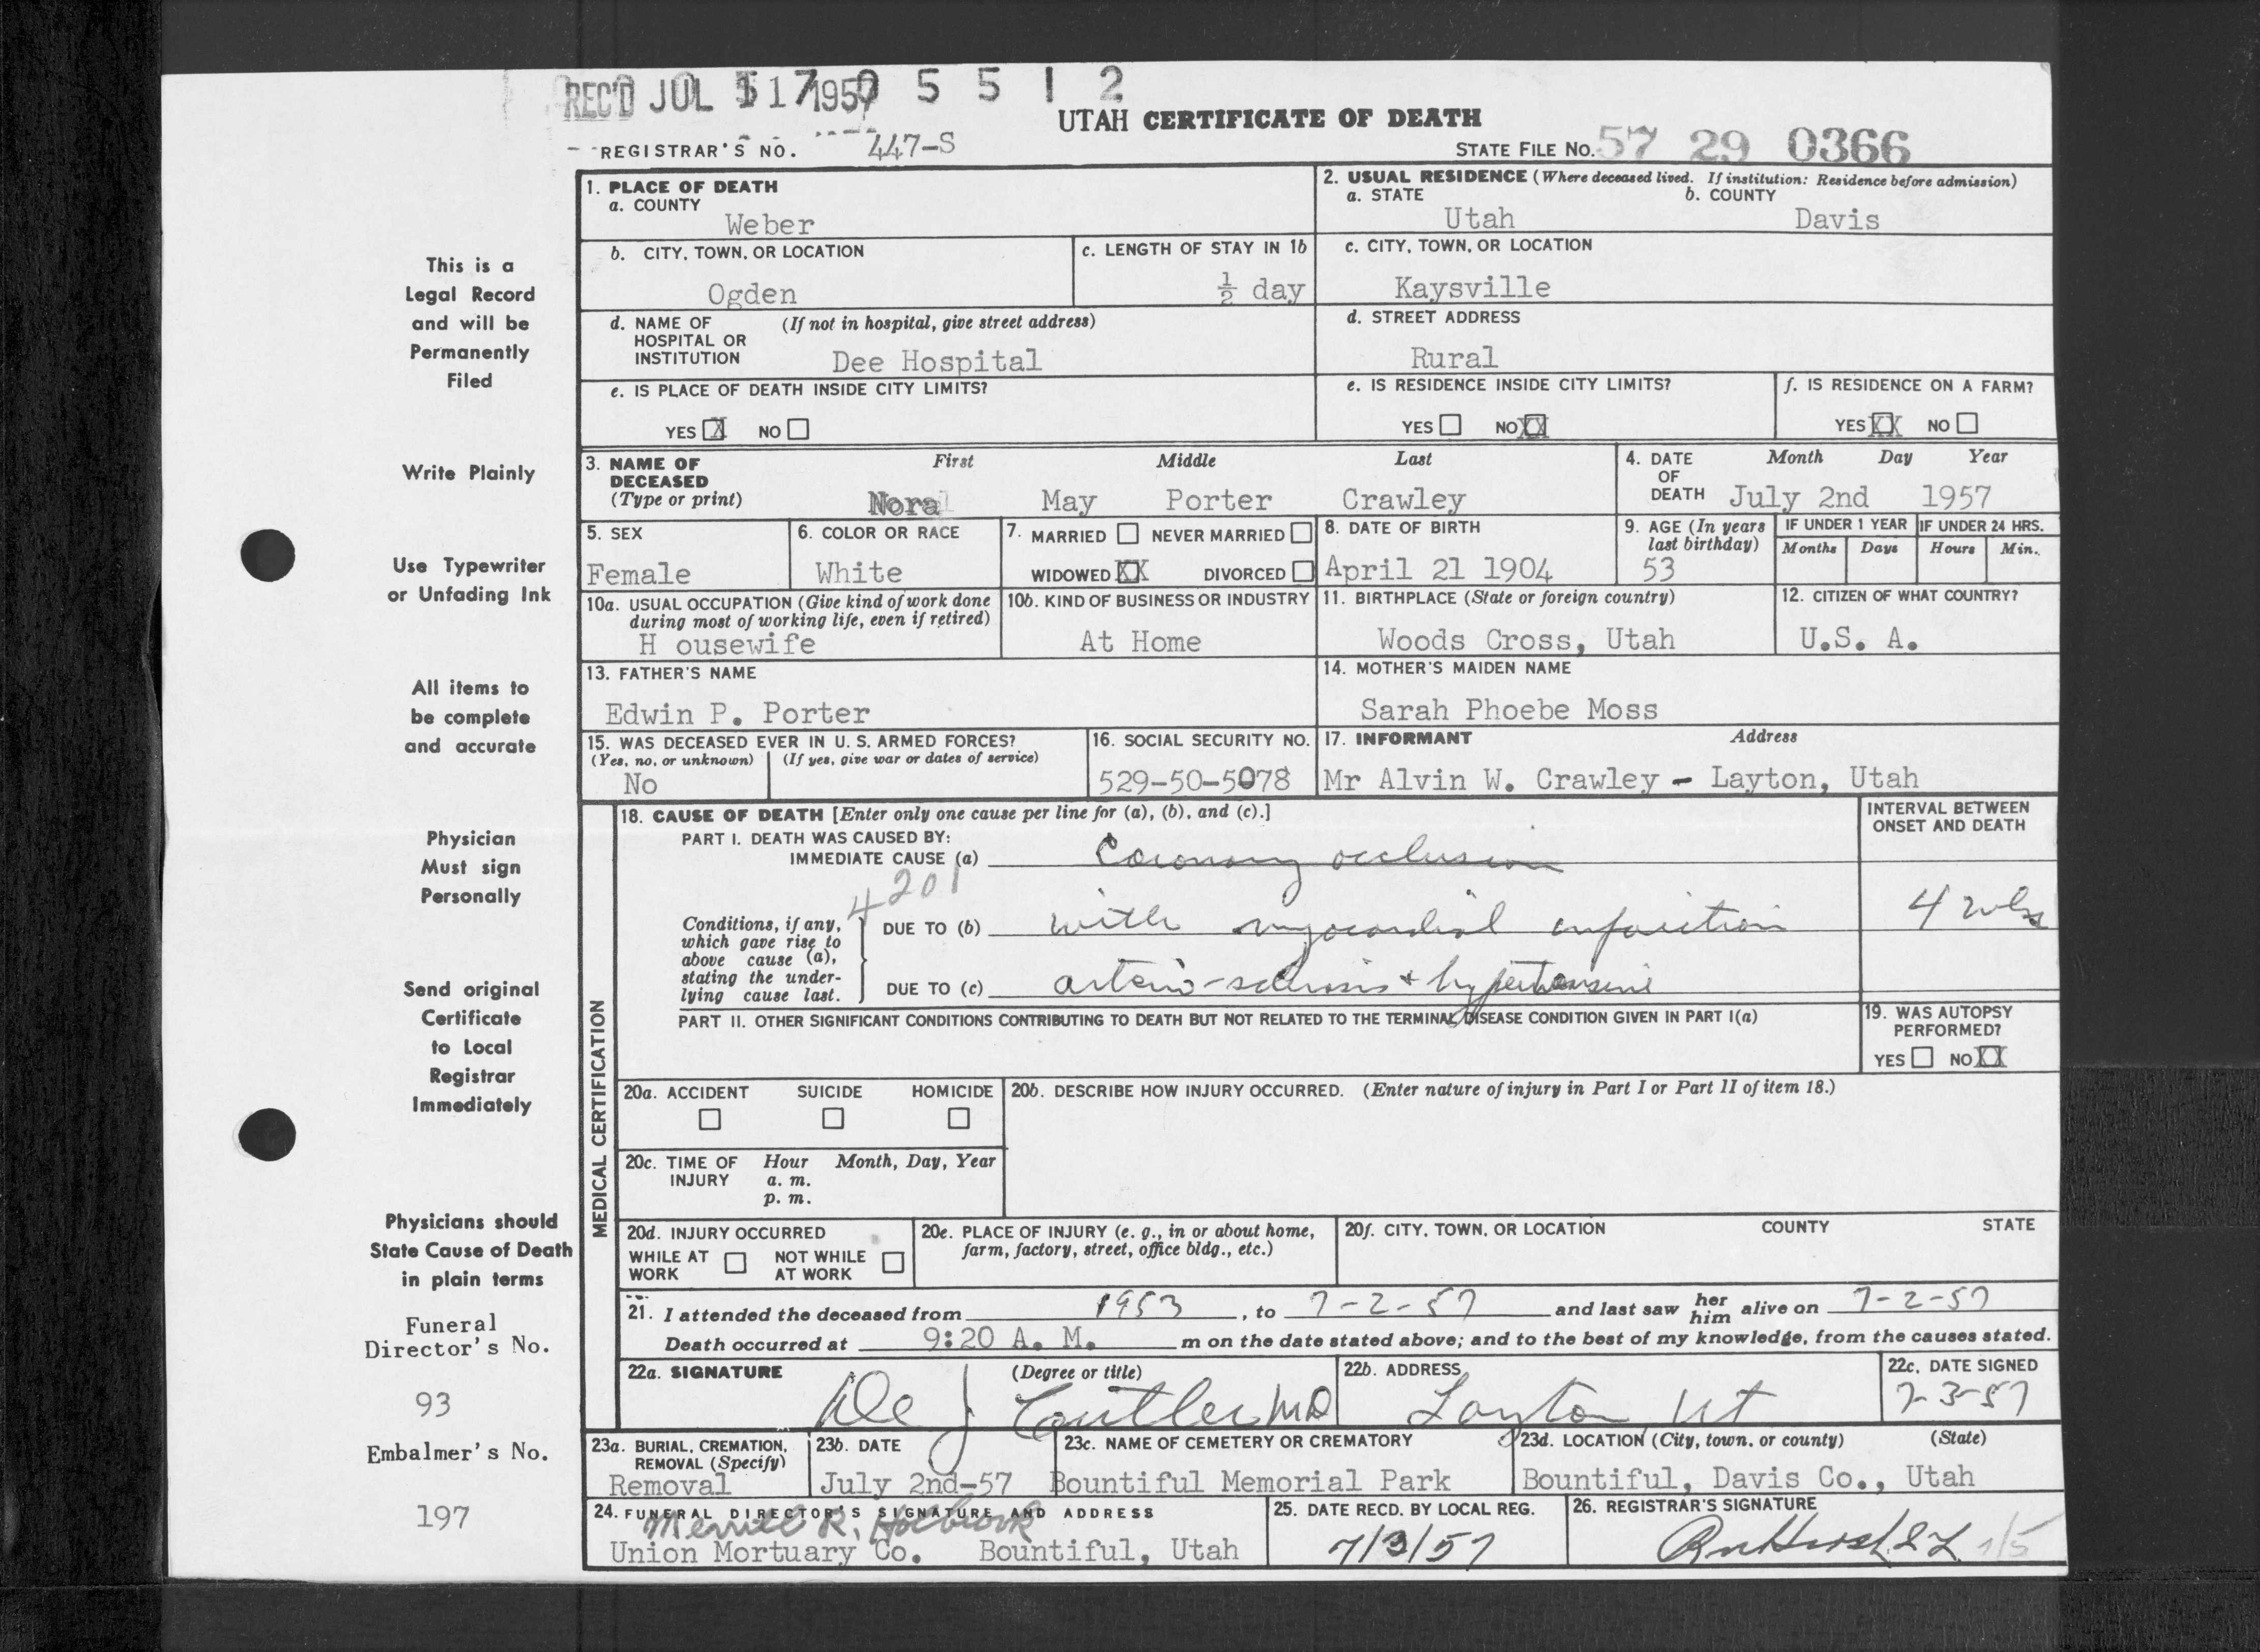 REC'D JUL 1957 0 5 5 1 2
UTAH CERTIFICATE OF DEATH
REGISTRAR'S NO. 447-S
STATE FILE NO. 57 29 0366
1. PLACE OF DEATH
a. COUNTY
Weber
2. USUAL RESIDENCE (Where deceased lived. If institution: Residence before admission)
a. STATE b. COUNTY
Utah Davis
b. CITY, TOWN, OR LOCATION
Ogden
c. LENGTH OF STAY IN 1b
½ day
c. CITY, TOWN, OR LOCATION
Kaysville
d. NAME OF (If not in hospital, give street address)
HOSPITAL OR
INSTITUTION Dee Hospital
d. STREET ADDRESS
Rural
e. IS PLACE OF DEATH INSIDE CITY LIMITS?
YES X NO
e. IS RESIDENCE INSIDE CITY LIMITS?
YES NO XX
f. IS RESIDENCE ON A FARM?
YES XX NO
3. NAME OF First Middle Last
DECEASED
(Type or print) Nora May Porter Crawley
4. DATE Month Day Year
OF
DEATH July 2nd 1957
5. SEX
Female
6. COLOR OR RACE
White
7. MARRIED NEVER MARRIED
WIDOWED XX DIVORCED
8. DATE OF BIRTH
April 21 1904
9. AGE (In years
last birthday)
53
IF UNDER 1 YEAR
Months Days
IF UNDER 24 HRS.
Hours Min.
10a. USUAL OCCUPATION (Give kind of work done
during most of working life, even if retired)
H ousewife
10b. KIND OF BUSINESS OR INDUSTRY
At Home
11. BIRTHPLACE (State or foreign country)
Woods Cross, Utah
12. CITIZEN OF WHAT COUNTRY?
U.S. A.
13. FATHER'S NAME
Edwin P. Porter
14. MOTHER'S MAIDEN NAME
Sarah Phoebe Moss
15. WAS DECEASED EVER IN U. S. ARMED FORCES?
(Yes, no, or unknown) (If yes, give war or dates of service)
No
16. SOCIAL SECURITY NO.
529-50-5078
17. INFORMANT Address
Mr Alvin W. Crawley - Layton, Utah
MEDICAL CERTIFICATION
18. CAUSE OF DEATH [Enter only one cause per line for (a), (b), and (c).]
PART I. DEATH WAS CAUSED BY:
IMMEDIATE CAUSE (a) Coronary occlusion
4201
Conditions, if any,
which gave rise to
above cause (a),
stating the under-
lying cause last.
DUE TO (b) with myocardial infarction
DUE TO (c) arterio-sclerosis + hypertensive
INTERVAL BETWEEN
ONSET AND DEATH
4 wks
PART II. OTHER SIGNIFICANT CONDITIONS CONTRIBUTING TO DEATH BUT NOT RELATED TO THE TERMINAL DISEASE CONDITION GIVEN IN PART I(a)
19. WAS AUTOPSY
PERFORMED?
YES NO XX
20a. ACCIDENT SUICIDE HOMICIDE
20b. DESCRIBE HOW INJURY OCCURRED. (Enter nature of injury in Part I or Part II of item 18.)
20c. TIME OF Hour Month, Day, Year
INJURY a. m.
p. m.
20d. INJURY OCCURRED
WHILE AT NOT WHILE
WORK AT WORK
20e. PLACE OF INJURY (e. g., in or about home,
farm, factory, street, office bldg., etc.)
20f. CITY, TOWN, OR LOCATION COUNTY STATE
21. I attended the deceased from 1953, to 7-2-57 and last saw her him alive on 7-2-57
Death occurred at 9:20 A. M. m on the date stated above; and to the best of my knowledge, from the causes stated.
22a. SIGNATURE (Degree or title)
J Cutler MD
22b. ADDRESS
Layton Ut
22c. DATE SIGNED
7-3-57
23a. BURIAL, CREMATION,
REMOVAL (Specify)
Removal
23b. DATE
July 2nd-57
23c. NAME OF CEMETERY OR CREMATORY
Bountiful Memorial Park
23d. LOCATION (City, town, or county) (State)
Bountiful, Davis Co., Utah
24. FUNERAL DIRECTOR'S SIGNATURE AND ADDRESS
Merrill R. Holbrook
Union Mortuary Co. Bountiful, Utah
25. DATE RECD. BY LOCAL REG.
7/3/57
26. REGISTRAR'S SIGNATURE
This is a
Legal Record
and will be
Permanently
Filed
Write Plainly
Use Typewriter
or Unfading Ink
All items to
be complete
and accurate
Physician
Must sign
Personally
Send original
Certificate
to Local
Registrar
Immediately
Physicians should
State Cause of Death
in plain terms
Funeral
Director's No.
93
Embalmer's No.
197